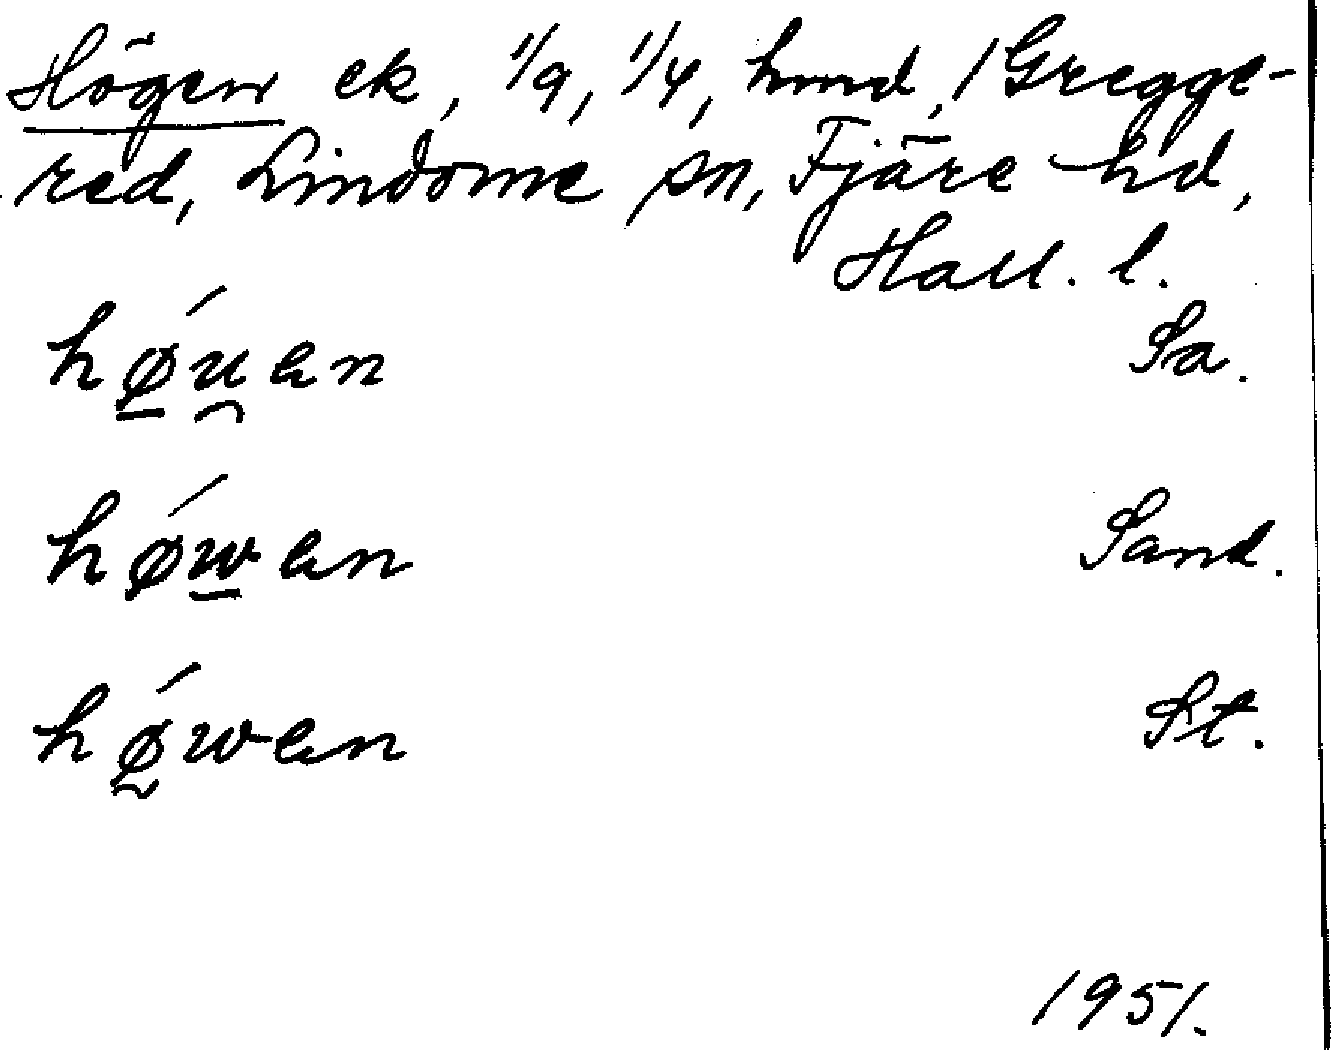 Högen ek, 1/9, 1/4, hmd, / Gregge-
red, Lindome sn, Fjäre hd,
Hall. l.
hǿu̯an Sa.
hǿwan Sand.
hǿwan St.
1951.